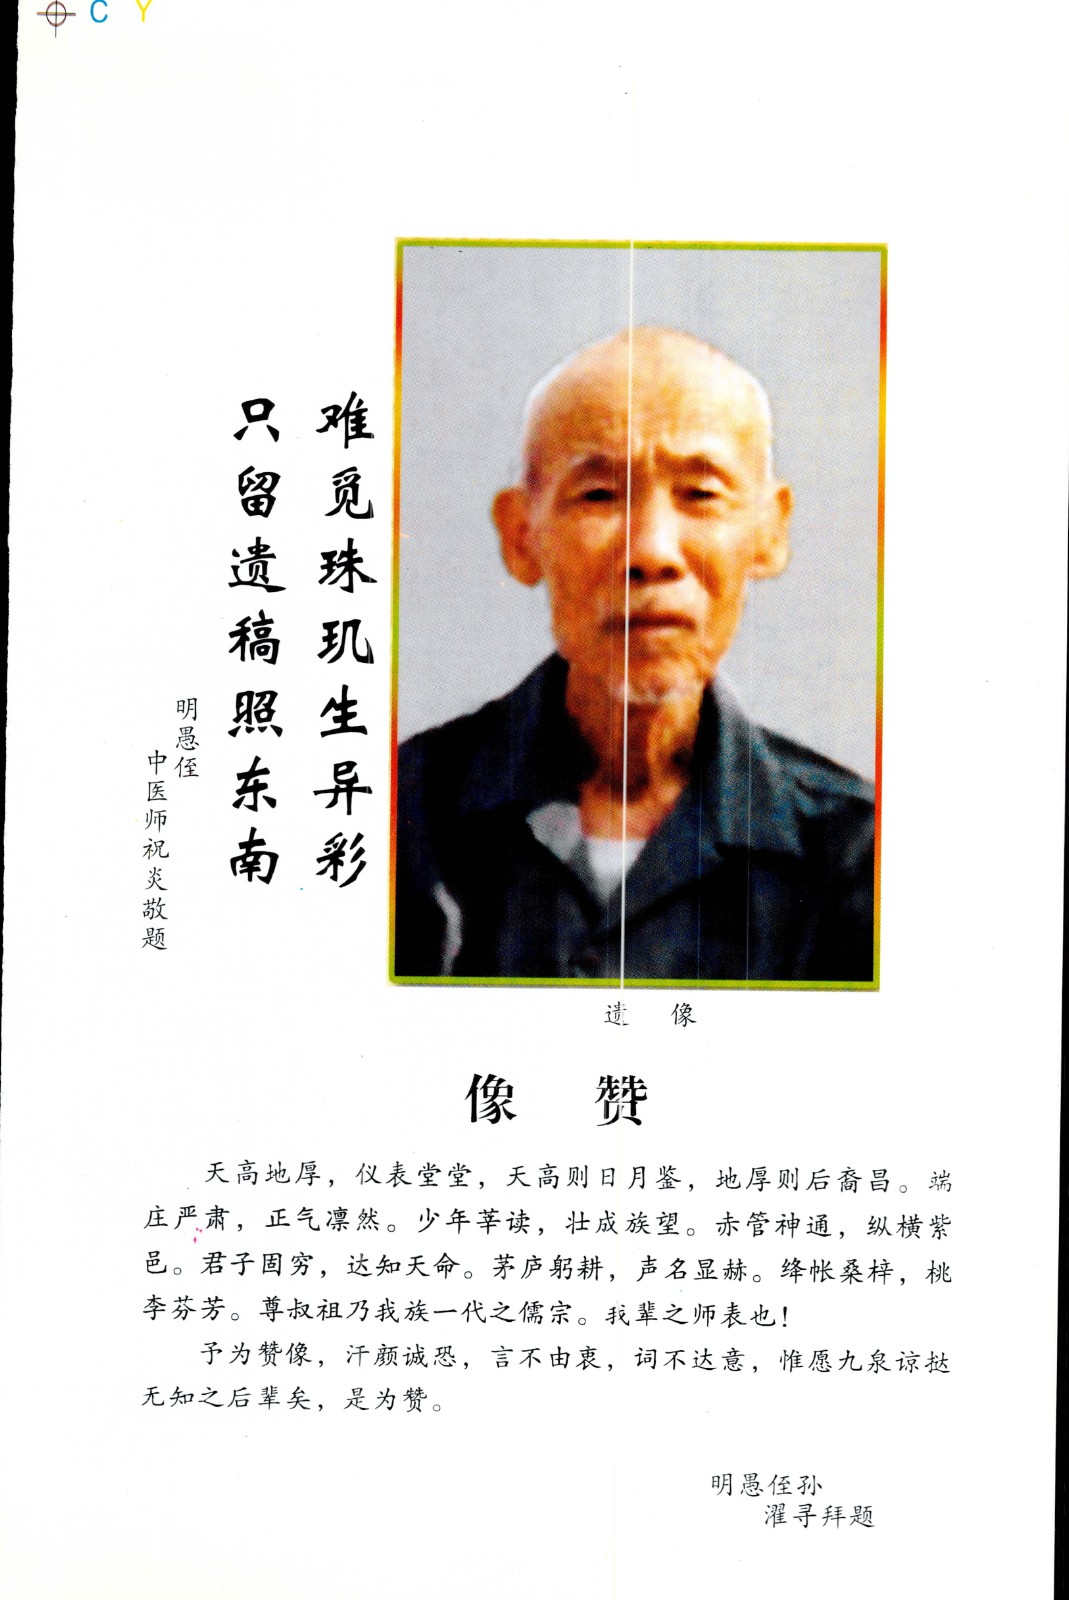 C Y
难觅珠玑生异彩
只留遗稿照东南
明愚侄
中医师祝炎敬题
遗 像
像 赞
天高地厚，仪表堂堂，天高则日月鉴，地厚则后裔昌。端
庄严肃，正气凛然。少年莘读，壮成族望。赤管神通，纵横紫
邑。君子固穷，达知天命。茅庐躬耕，声名显赫。绛帐桑梓，桃
李芬芳。尊叔祖乃我族一代之儒宗。我辈之师表也！
予为赞像，汗颜诚恐，言不由衷，词不达意，惟愿九泉谅挞
无知之后辈矣，是为赞。
明愚侄孙
濯寻拜题